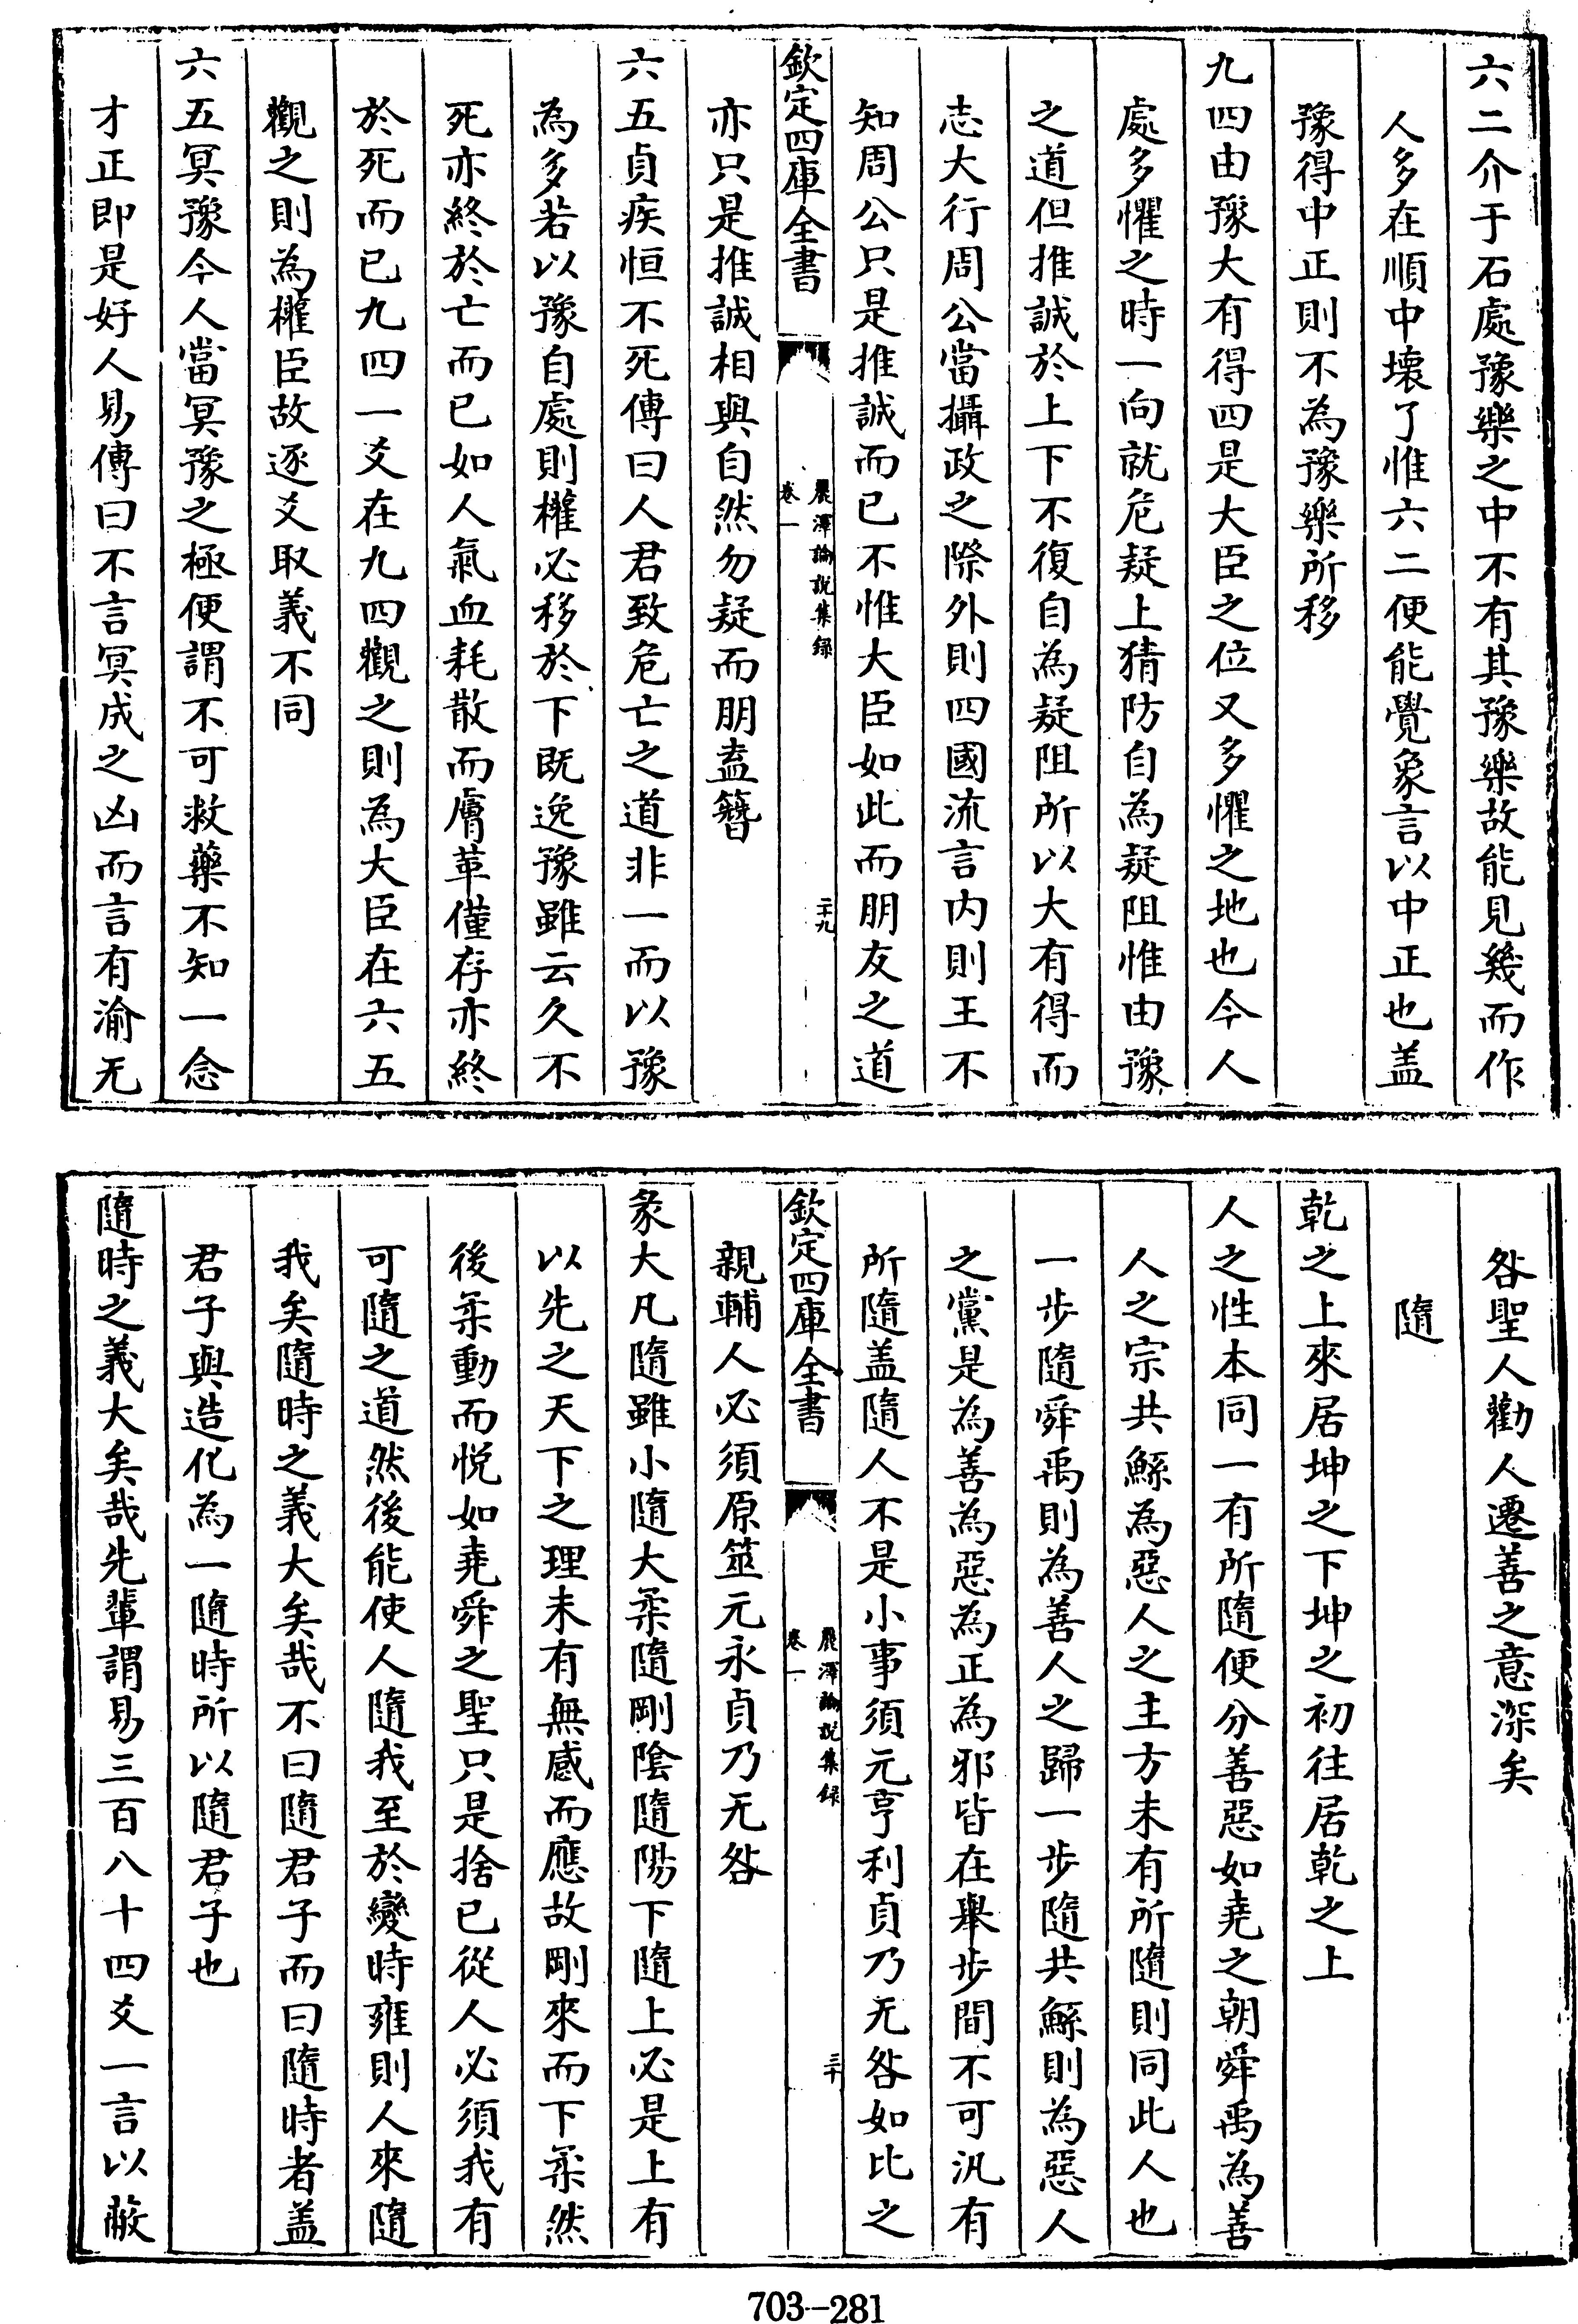 六二介于石處豫樂之中不有其豫樂故能見幾而作
人多在順中壊了惟六二便能覺象言以中正也盖
豫得中正則不為豫樂所移
九四由豫大有得四是大臣之位又多懼之地也今人
處多懼之時一向就危疑上猜防自為疑阻惟由豫
之道但推誠於上下不復自為疑阻所以大有得而
志大行周公當攝政之際外則四國流言内則王不
知周公只是推誠而已不惟大臣如此而朋友之道
欽定四庫全書
麗澤論說集録
卷一
二十九
亦只是推誠相與自然勿疑而朋盍簪
六五貞疾恒不死傳曰人君致危亡之道非一而以豫
為多若以豫自處則權必移於下既逸豫雖云久不
死亦終於亡而已如人氣血耗散而膚革僅存亦終
於死而已九四一爻在九四觀之則為大臣在六五
觀之則為權臣故逐爻取義不同
六五冥豫今人當冥豫之極便謂不可救藥不知一念
才正即是好人易傳曰不言冥成之凶而言有渝无
咎聖人勸人遷善之意深矣
隨
乾之上來居坤之下坤之初往居乾之上
人之性本同一有所隨便分善惡如堯之朝舜禹為善
人之宗共鯀為惡人之主方未有所隨則同此人也
一步隨舜禹則為善人之歸一步隨共鯀則為惡人
之黨是為善為惡為正為邪皆在舉步間不可汎有
所隨盖隨人不是小事須元亨利貞乃无咎如比之
欽定四庫全書
麗澤論說集録
卷一
三十
親輔人必須原筮元永貞乃无咎
彖大凡隨雖小隨大柔隨剛陰隨陽下隨上必是上有
以先之天下之理未有無感而應故剛來而下柔然
後柔動而悦如堯舜之聖只是捨已從人必須我有
可隨之道然後能使人隨我至於變時雍則人來隨
我矣隨時之義大矣哉不曰隨君子而曰隨時者盖
君子與造化為一隨時所以隨君子也
隨時之義大矣哉先輩謂易三百八十四爻一言以蔽
703-281